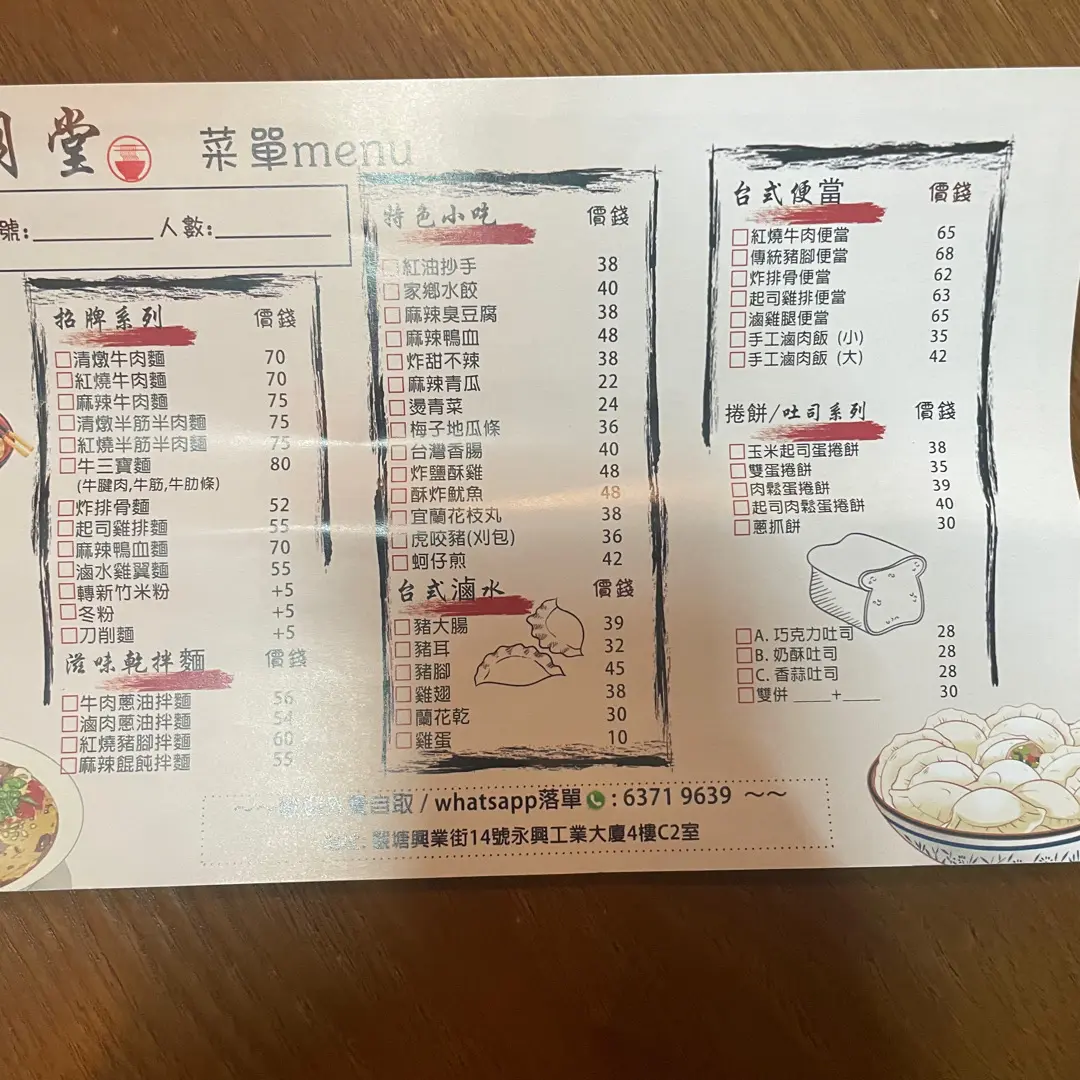 堂
菜單menu
號:__________人數:__________
招牌系列 價錢
清燉牛肉麵 70
紅燒牛肉麵 70
麻辣牛肉麵 75
清燉半筋半肉麵 75
紅燒半筋半肉麵 75
牛三寶麵 80
(牛腱肉,牛筋,牛肋條)
炸排骨麵 52
起司雞排麵 55
麻辣鴨血麵 70
滷水雞翼麵 55
轉新竹米粉 +5
冬粉 +5
刀削麵 +5
滋味乾拌麵 價錢
牛肉蔥油拌麵 56
滷肉蔥油拌麵 54
紅燒豬腳拌麵 60
麻辣餛飩拌麵 55
特色小吃 價錢
紅油抄手 38
家鄉水餃 40
麻辣臭豆腐 38
麻辣鴨血 48
炸甜不辣 38
麻辣青瓜 22
燙青菜 24
梅子地瓜條 36
台灣香腸 40
炸鹽酥雞 48
酥炸魷魚 48
宜蘭花枝丸 38
虎咬豬(刈包) 36
蚵仔煎 42
台式滷水 價錢
豬大腸 39
豬耳 32
豬腳 45
雞翅 38
蘭花乾 30
雞蛋 10
台式便當 價錢
紅燒牛肉便當 65
傳統豬腳便當 68
炸排骨便當 62
起司雞排便當 63
滷雞腿便當 65
手工滷肉飯 (小) 35
手工滷肉飯 (大) 42
捲餅/吐司系列 價錢
玉米起司蛋捲餅 38
雙蛋捲餅 35
肉鬆蛋捲餅 39
起司肉鬆蛋捲餅 40
蔥抓餅 30
A. 巧克力吐司 28
B. 奶酥吐司 28
C. 香蒜吐司 28
雙併 _____+_____ 30
~~ 自取 / whatsapp落單 : 6371 9639 ~~
塘興業街14號永興工業大廈4樓C2室